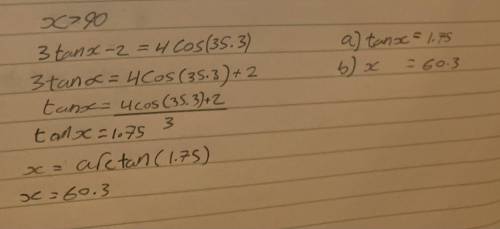 x>90
3tanx-2 = 4Cos(35.3)
3tanx = 4Cos(35.3)+2
tanx = 4cos(35.3)+2
3
tanx = 1.75
x = arctan(1.75)
x = 60.3
a) tanx = 1.75
b) x = 60.3